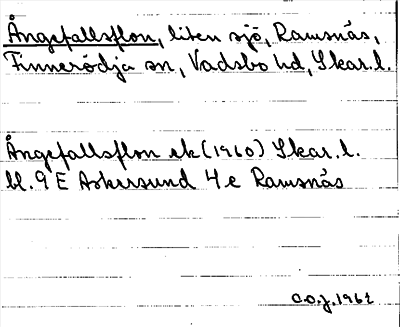 Ångefallsflon, liten sjö, Ramsnäs,
Finnerödja sn, Vadsbo hd, Skar.l.
Ångefallsflon ek (1960) Skar.l.
bl. 9 E Askersund 4 e Ramsnäs
C.O.J. 1962